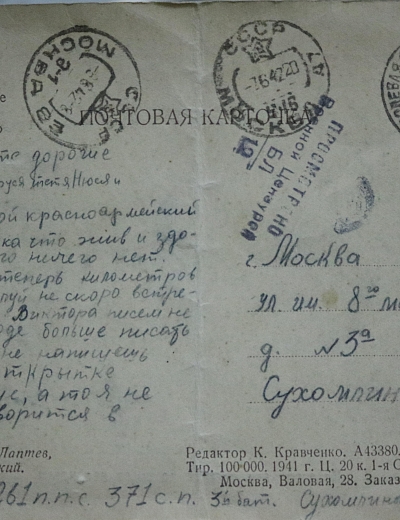 МОСКВА
СССР
СССР
МОСКВА
ПОЧТОВАЯ КАРТОЧКА
ПРОСМОТРЕНО
Военной Цензурой
БЛ
дорогие
Тетя Нюся и
ой красноармейский
ка что жив и здо-
го ничего нет.
теперь километров
луй не скоро встре-
Виктора писем не
оде больше писать
не напишешь
открытке
ис, а то я не
ворится в
г. Москва
ул. им. 8го ма
д. №3а
Сухомлин
Лаптев,
ский.
Редактор К. Кравченко. А43380.
Тир. 100·000. 1941 г. Ц. 20 к. 1-я О
Москва, Валовая, 28. Заказ
261 п.п.с. 371 с.п. 3й бат. Сухомлино